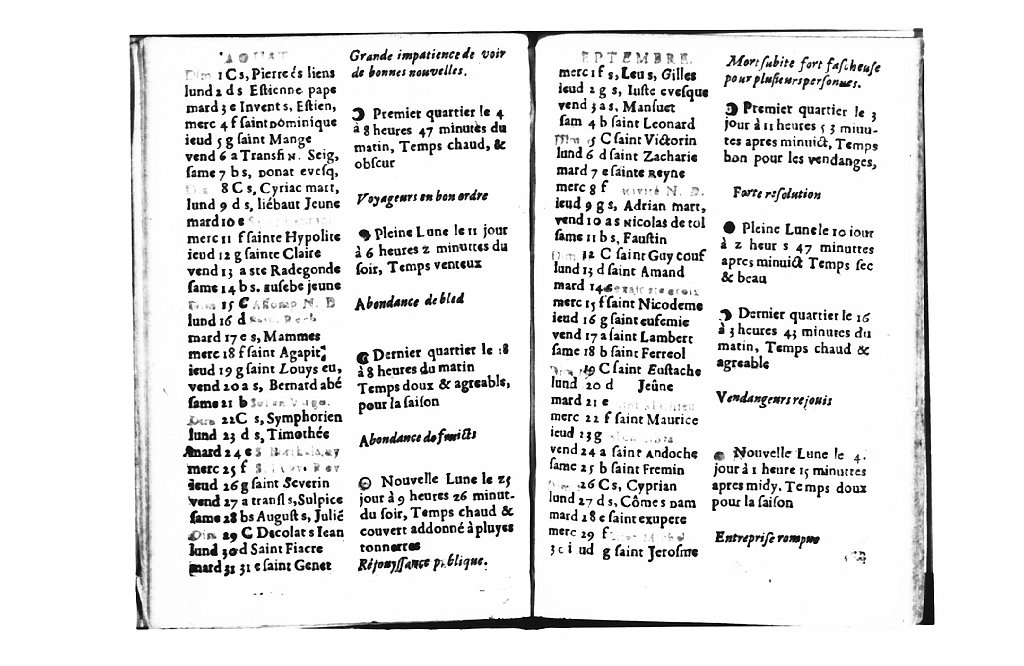 AOUST
Dim 1 C s, Pierre és liens
lund 2 d s Estienne pape
mard 3 e Invent s, Estien,
merc 4 f saint Dominique
ieud 5 g saint Mange
vend 6 a Transfi N. Seig,
same 7 b s, Donat evesq,
8 C s, Cyriac mart,
lund 9 d s, liébaut Jeune
mard 10 e
merc 11 f sainte Hypolite
ieud 12 g sainte Claire
vend 13 a ste Radegonde
same 14 b s. Eusebe jeune
15 C Assomp N. D
lund 16 d
mard 17 e s, Mammes
merc 18 f saint Agapit,
ieud 19 g saint Louys eu,
vend 20 a s, Bernard abé
same 21 b
22 C s, Symphorien
lund 23 d s, Timothée
mard 24 e S Bartholemy
merc 25 f S. Louys Roy
ieud 26 g saint Severin
vend 27 a transl s, Sulpice
same 28 b s August s, Julié
Dim 29 C Decolat s Iean
lund 30 d Saint Fiacre
mard 31 31 e saint Genet
Grande impatience de voir
de bonnes nouvelles.
Premier quartier le 4
à 8 heures 47 minutes du
matin, Temps chaud, &
obscur
Voyageurs en bon ordre
Pleine Lune le 11 jour
à 6 heures 2 minuttes du
soir, Temps venteux
Abondance de bled
Dernier quartier le 18
à 8 heures du matin
Temps doux & agreable,
pour la saison
Abondance de fruicts
Nouvelle Lune le 25
jour à 9 heures 26 minut-
du soir, Temps chaud &
couvert addonné à pluyes
tonnerres
Réjouyssance publique.
EPTEMBRE.
merc 1 f s, Leu s, Gilles
ieud 2 g s, Iuste evesque
vend 3 a s, Mansuet
sam 4 b saint Leonard
Dim 5 C saint Victorin
lund 6 d saint Zacharie
mard 7 e sainte Reyne
merc 8 f Nativité N. D.
ieud 9 g s, Adrian mart,
vend 10 a s Nicolas de tol
same 11 b s, Faustin
Dim 12 C saint Guy couf
lund 13 d saint Amand
mard 14 e
merc 15 f saint Nicodeme
ieud 16 g saint eufemie
vend 17 a saint Lambert
same 18 b saint Ferreol
Dim 19 C saint Eustache
lund 20 d Jeûne
mard 21 e
merc 22 f saint Maurice
ieud 23 g
vend 24 a saint Andoche
same 25 b saint Fremin
26 C s, Cyprian
lund 27 d s, Côme s Dam
mard 28 e saint exupere
merc 29 f
3 c i ud g saint Jerosme
Mort subite fort fascheuse
pour plusieurs personnes.
Premier quartier le 3
jour à 11 heures 53 minu-
tes apres minuict, Temps
bon pour les vendanges,
Forte resolution
Pleine Lune le 10 iour
à 2 heur s 47 minuttes
apres minuict Temps sec
& beau
Dernier quartier le 16
à 3 heures 43 minutes du
matin, Temps chaud &
agreable
Vendangeurs rejouis
Nouvelle Lune le 4.
jour à 1 heure 15 minuttes
apres midy. Temps doux
pour la saison
Entreprise rompue